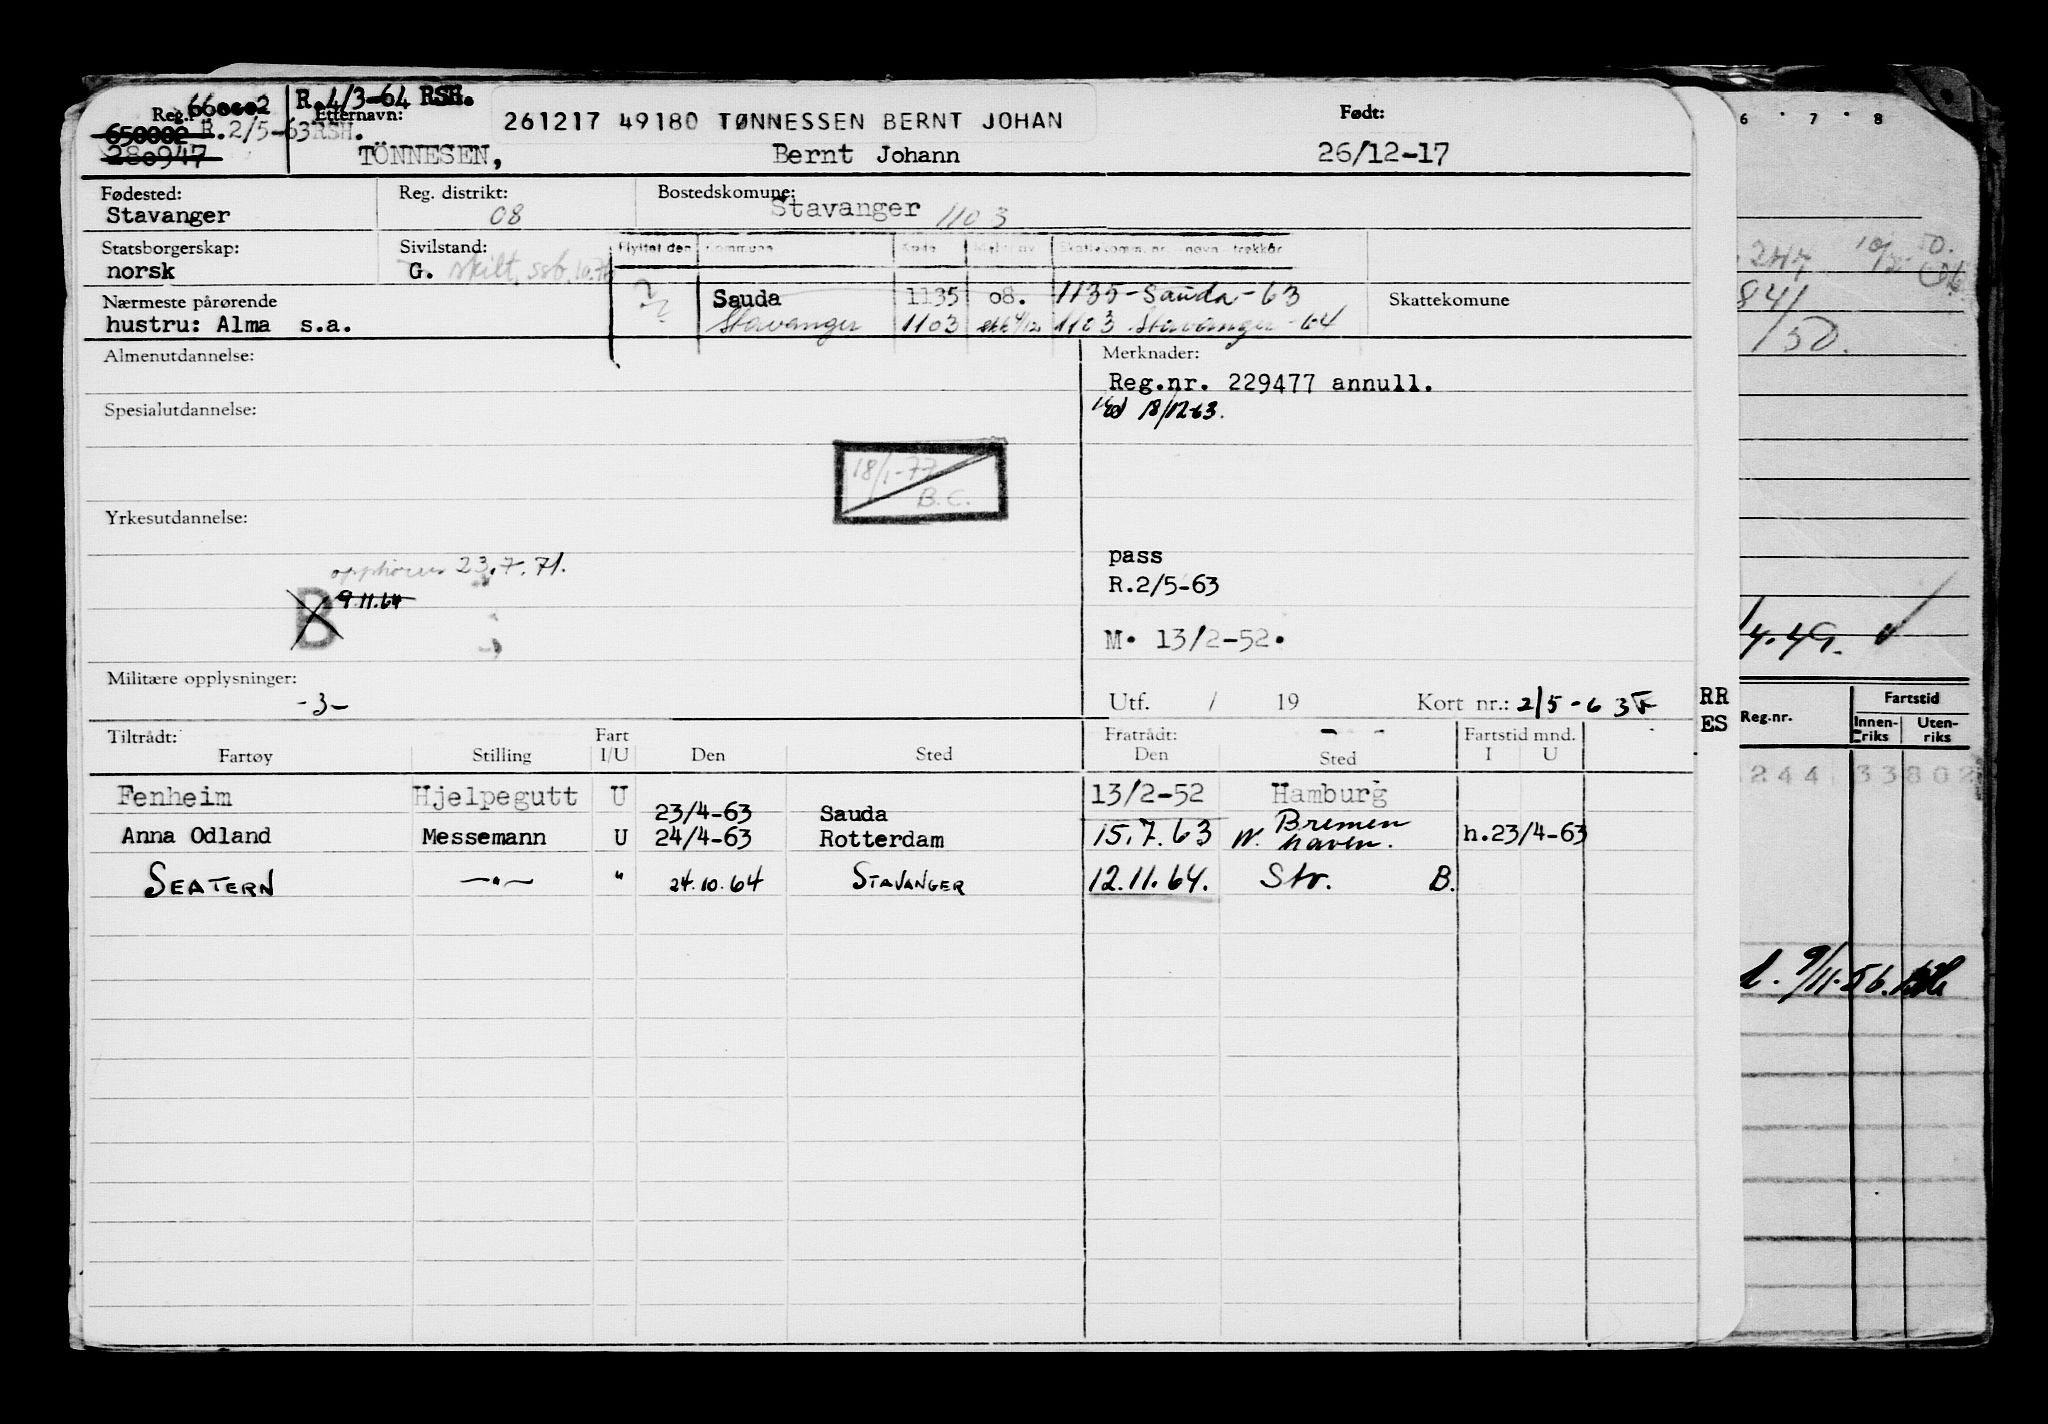 R.4/3-64 RSH.
Reg. 660602 Etternavn: 261217 49180 TØNNESSEN BERNT JOHAN Født:
650002 R.2/5-63RSH.
280947 TÖNNESEN, Bernt Johann 26/12-17
Fødested: Reg. distrikt: Bostedskomune:
Stavanger 08 Stavanger 1103
Statsborgerskap: Sivilstand: Flyttet den Kommune Kode Meld. av Skattekomm. nr. - navn - trekkår
norsk G. skilt. ssb.
Nærmeste pårørende Sauda 1135 08. 1135-Sauda-63 Skattekomune
hustru: Alma s.a. Stavanger 1103 1103 Stavanger-64
Almenutdannelse: Merknader:
Reg.nr. 229477 annull.
Spesialutdannelse: 18/12-63.
18/1-77
B.C.
Yrkesutdannelse:
pass
opphører 23.7.71. R.2/5-63
B 9.11.64
M. 13/2-52.
Militære opplysninger:
-3- Utf. / 19 Kort nr.: 2/5-63 F
RR
ES
Tiltrådt: Fart Fratrådt: Fartstid mnd.
Fartøy Stilling I/U Den Sted Den Sted I U
Fenheim Hjelpegutt U 13/2-52 Hamburg
23/4-63 Sauda
Anna Odland Messemann U 24/4-63 Rotterdam 15.7.63 W. Bremen haven. h.23/4-63
SEATERN —"— " 24.10.64 STAVANGER 12.11.64. Stv. B.
6 · 7 · 8
247
841
/50.
4.49.
Reg.nr. Fartstid
Innenriks Utenriks
244 33802
9/11.56.